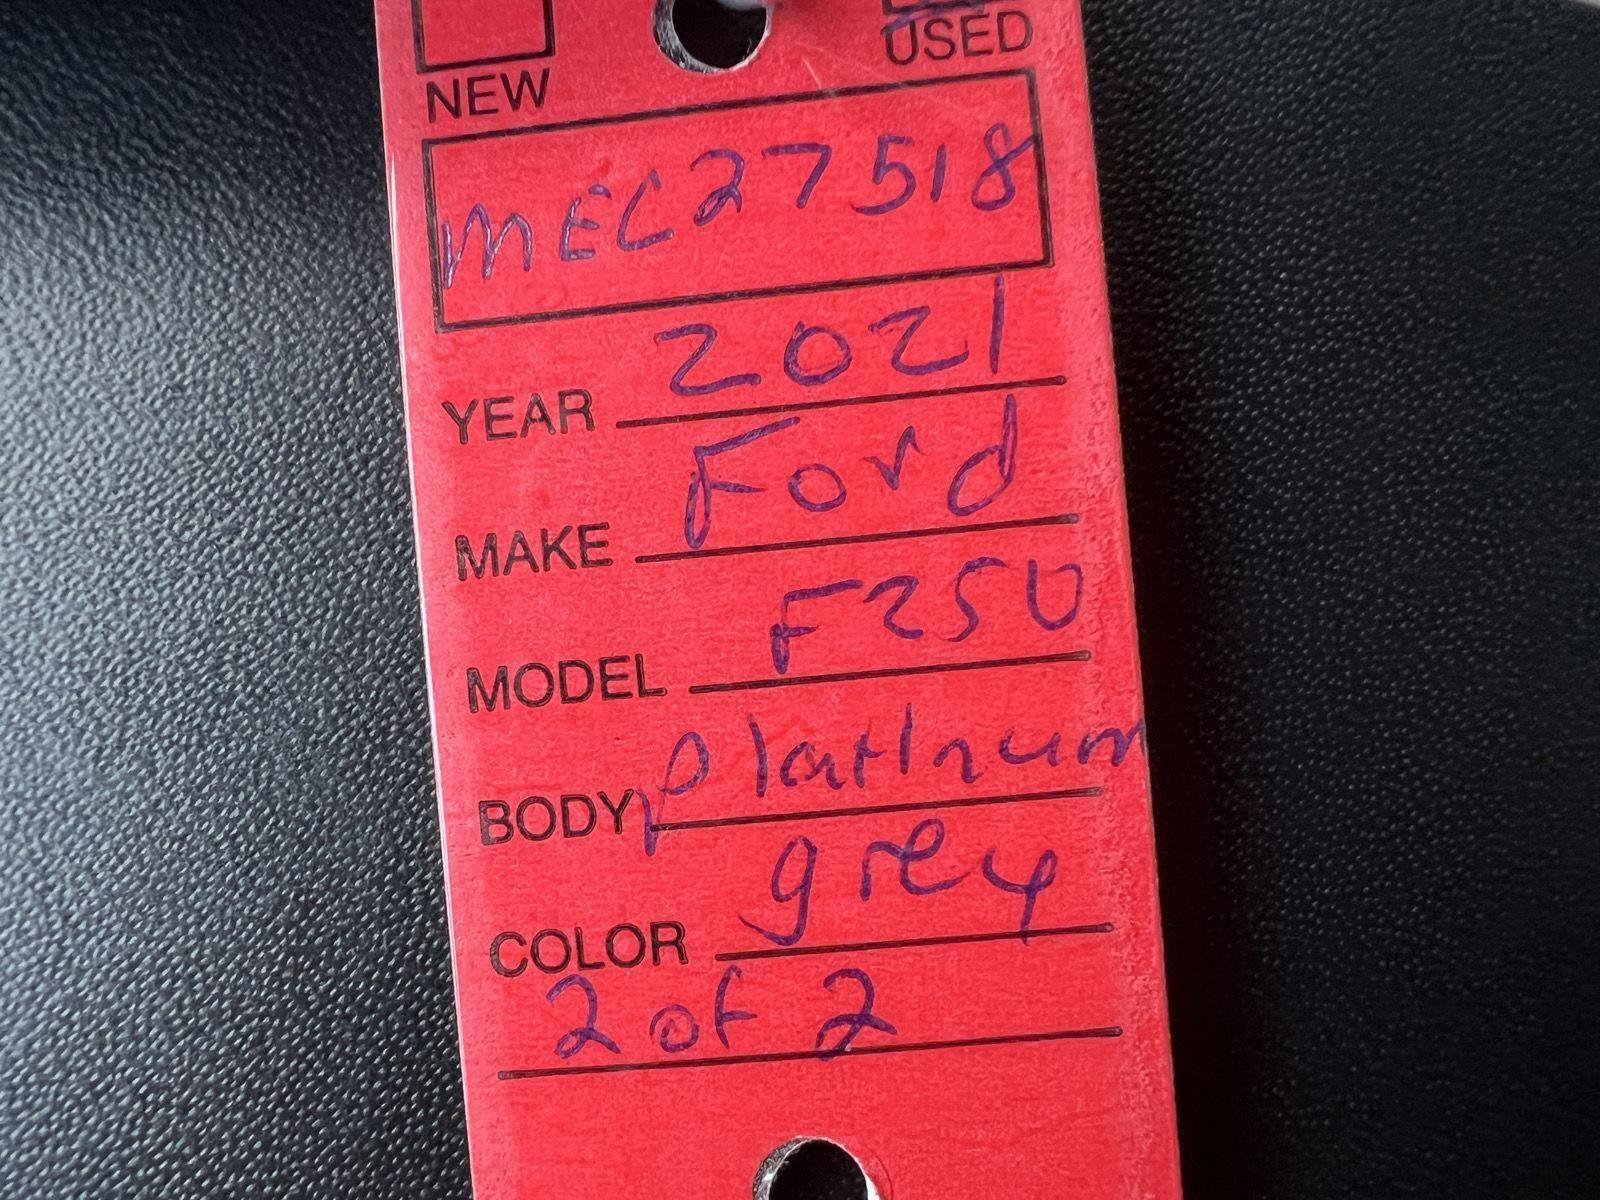 NEW USED
MEC27518
YEAR 2021
MAKE Ford
MODEL F250
BODY Platinum
COLOR grey
2 of 2